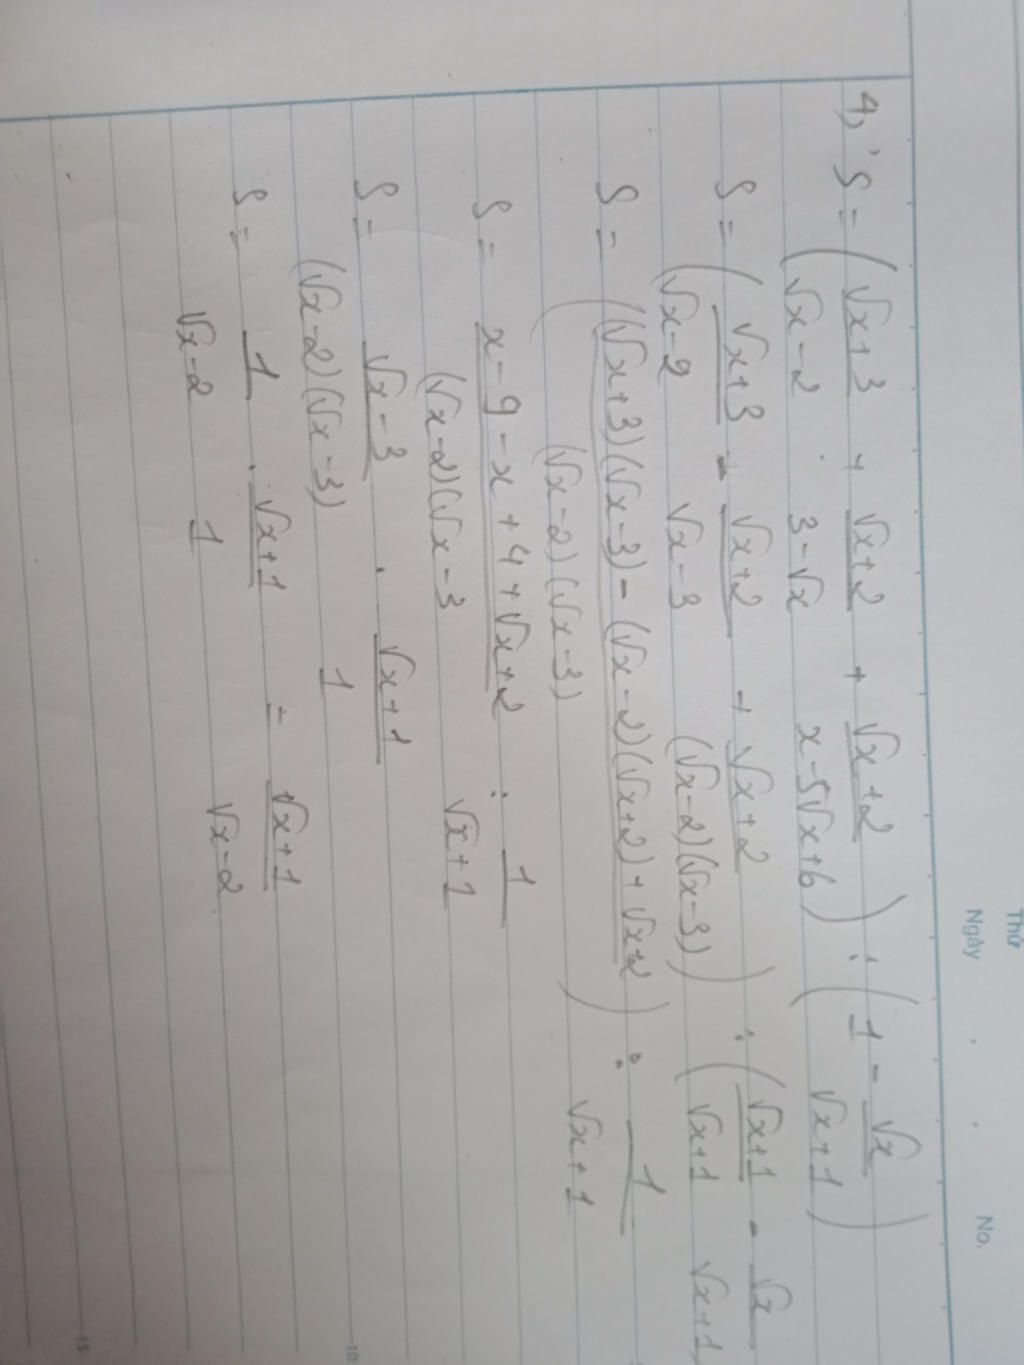 Thứ
Ngày . . No.
4, S = ( (√x+3)/(√x-2) + (√x+2)/(3-√x) + (√x+2)/(x-5√x+6) ) : ( 1 - √x/(√x+1) )
S = ( (√x+3)/(√x-2) - (√x+2)/(√x-3) + (√x+2)/((√x-2)(√x-3)) ) : ( (√x+1)/(√x+1) - √x/(√x+1)
S = ( ((√x+3)(√x-3) - (√x-2)(√x+2) + √x+2)/((√x-2)(√x-3)) ) : 1/(√x+1)
S = (x-9-x+4+√x+2)/((√x-2)(√x-3) : 1/(√x+1)
S = (√x-3)/((√x-2)(√x-3)) . (√x+1)/1
S = 1/(√x-2) . (√x+1)/1 = (√x+1)/(√x-2)
10
15